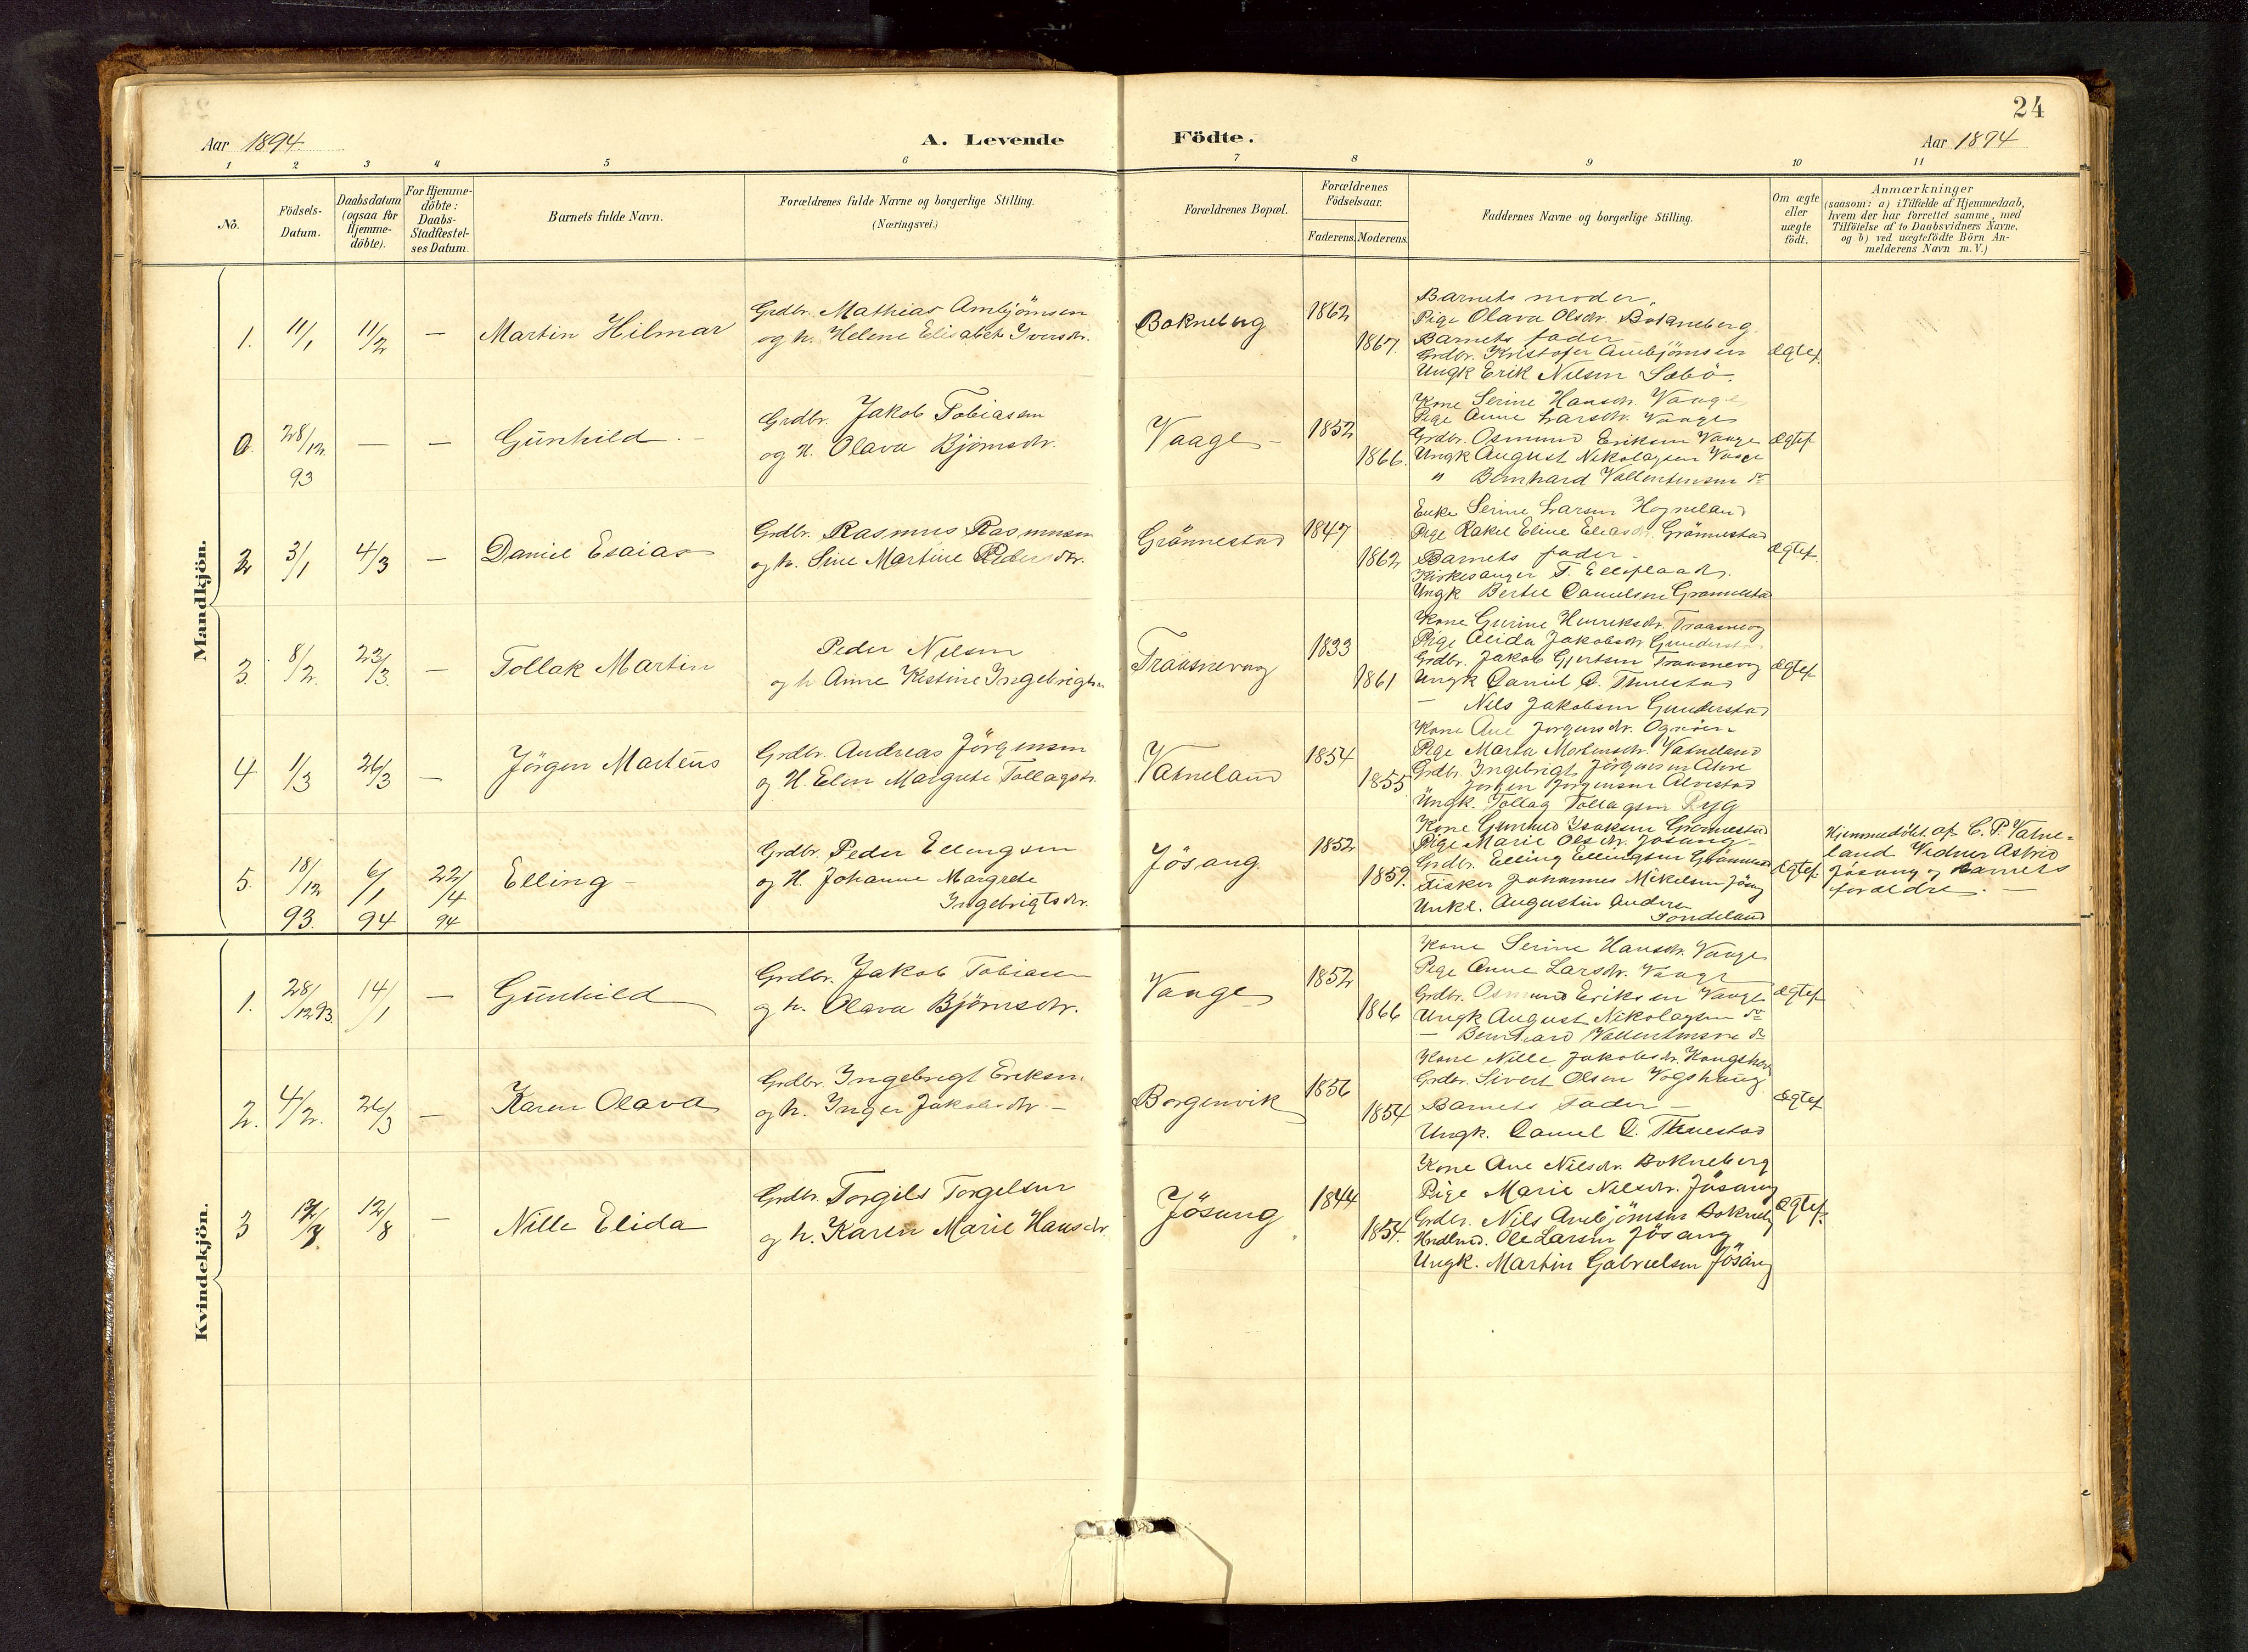 24
Aar 1894.
A. Levende
Födte.
Aar 1894
1 2 3 4 5 6 7 8 9 10 11
No.
Födsels-
Datum.
Daabsdatum
(ogsaa for
Hjemme-
döbte).
For Hjemme-
döbte:
Daabs-
Stadfæstel-
ses Datum.
Barnets fulde Navn.
Forældrenes fulde Navne og borgerlige Stilling.
(Næringsvei.)
Forældrenes Bopæl.
Forældrenes
Födselsaar.
Faderens. Moderens.
Faddernes Navne og borgerlige Stilling.
Om ægte
eller
uægte
födt.
Anmærkninger
(saasom: a) i Tilfælde af Hjemmedaab,
hvem der har forrettet samme, med
Tilföielse af to Daabsvidners Navne.
og b) ved uægtefödte Börn An-
melderens Navn m.V.)
Mandkjön.
1. 11/1 11/2 — Martin Hilmar
Grdbr. Mathias Arnbjörnsen
og h. Helene Elisabeth Iversdr.
Bokneberg
1862
1867.
Barnets moder.
Pige Olava Olsdr. Bokneberg.
Barnets fader
Grdbr. Kristofer Arnbjörnsen
Ungk Erik Nilsen Sæbö.
Ægtef.
0. 28/12 93 — — Gunhild. -
Grdbr. Jakob Tobiasen
og H. Olava Bjørnsdr.
Vaage -
1852
1866.
Kone Serine Hansdr. Vaage
Pige Anne Larsdr. Vaage
Grdbr. Osmund Eriksen Vaage
Ungk August Nikolaysen Vaage
" Bernhard Vallentinsen do
Ægtef
2 3/1 4/3 — Daniel Esaias
Grdbr. Rasmus Rasmussen
og h. Sine Martine Pedersdtr.
Grönnestad
1847
1862
Enke Serine Larsen Hogneland
Pige Rakel Eline Eliasdr. Grönnestad
Barnets fader -
Kirkesanger T.
Ungk Bertel Danielsen Grønnestad
Ægtef.
3. 8/2. 23/3. — Tollak Martin
Peder Nilsen
og h Anne Kistine Ingebrigtsen
1833
1861
Kone Gurine Henriksdr.
Pige Alida Jakobsdr
Grdbr. Jakob Gjertsen
Ungk Daniel D. Thuestad
— Nils Jakobsen Gunderstad
Ægtef
4 1/3 26/3 — Jörgen Marteus
Grdbr. Andreas Jörgensen
og H. Elen Margrete Tollagsdr.
Vatneland
1854
1855
Kone Ane Jorgensdr. Ognöen
Pige Marta Mortensdr. Vatneland
Grdbr. Ingebrigt Jörgensen
Jorgen Jorgensen Alvestad
Ungk. Tollag Tollagsen Ryg
5. 18/12 93. 6/1 94 22/4 94 Elling -
Grdbr. Peder Ellingsen
og H. Johanne Margrete
Ingebrigtsdr.
Jösang.
1852
1859.
Kone Gunhild Isaksen Grønnestad
Pige Marie Olsdr. Jösang -
Grdbr. Elling Ellingsen Grönnestad
Fisker Johannes Mikelsen Jösang
Unkl. Augustin Anders
Sondeland
Ægtef
Hjemmedöbt af C. P. Vatne-
land Vidner Astrid
Jösang og Barnets
forældre. —
Kvindekjön.
1. 28/12 93. 14/1 — Gunhild
Grdbr. Jakob Tobiasen
og h. Olava Bjørnsdr.
Vaage
1852
1866
Kone Serine Hansdr. Vaage
Pige Anne Larsdr. Vaage
Grdbr. Osmund Eriksen Vaage
Ungk August Nikolaysen do
— Bernhard Vallentinsen do
Ægtef
2. 4/2. 26/3 — Karen Olava
Grdbr. Ingebrigt Eriksen
og h. Inger Jakobsdr —
Borgenvik
1856
1854
Kone Nille Jakobsdr.
Grdbr. Sivert Olsen
Barnets Fader —
Ungk. Daniel D. Thuestad
Ægtef
3 12/8 — Nille Elida
Grdbr. Torgils Torgelsen
og h. Karen Marie Hansdr.
Jösang
1844
1854.
Kone Ane Nilsdr. Bokneberg
Pige Marie Nilsdr. Jösang
Grdbr. Nils Arnbjörnsen Bokneberg
Ole Larsen Jösang
Ungk. Martin Gabrielsen Jösang
Ægtef.